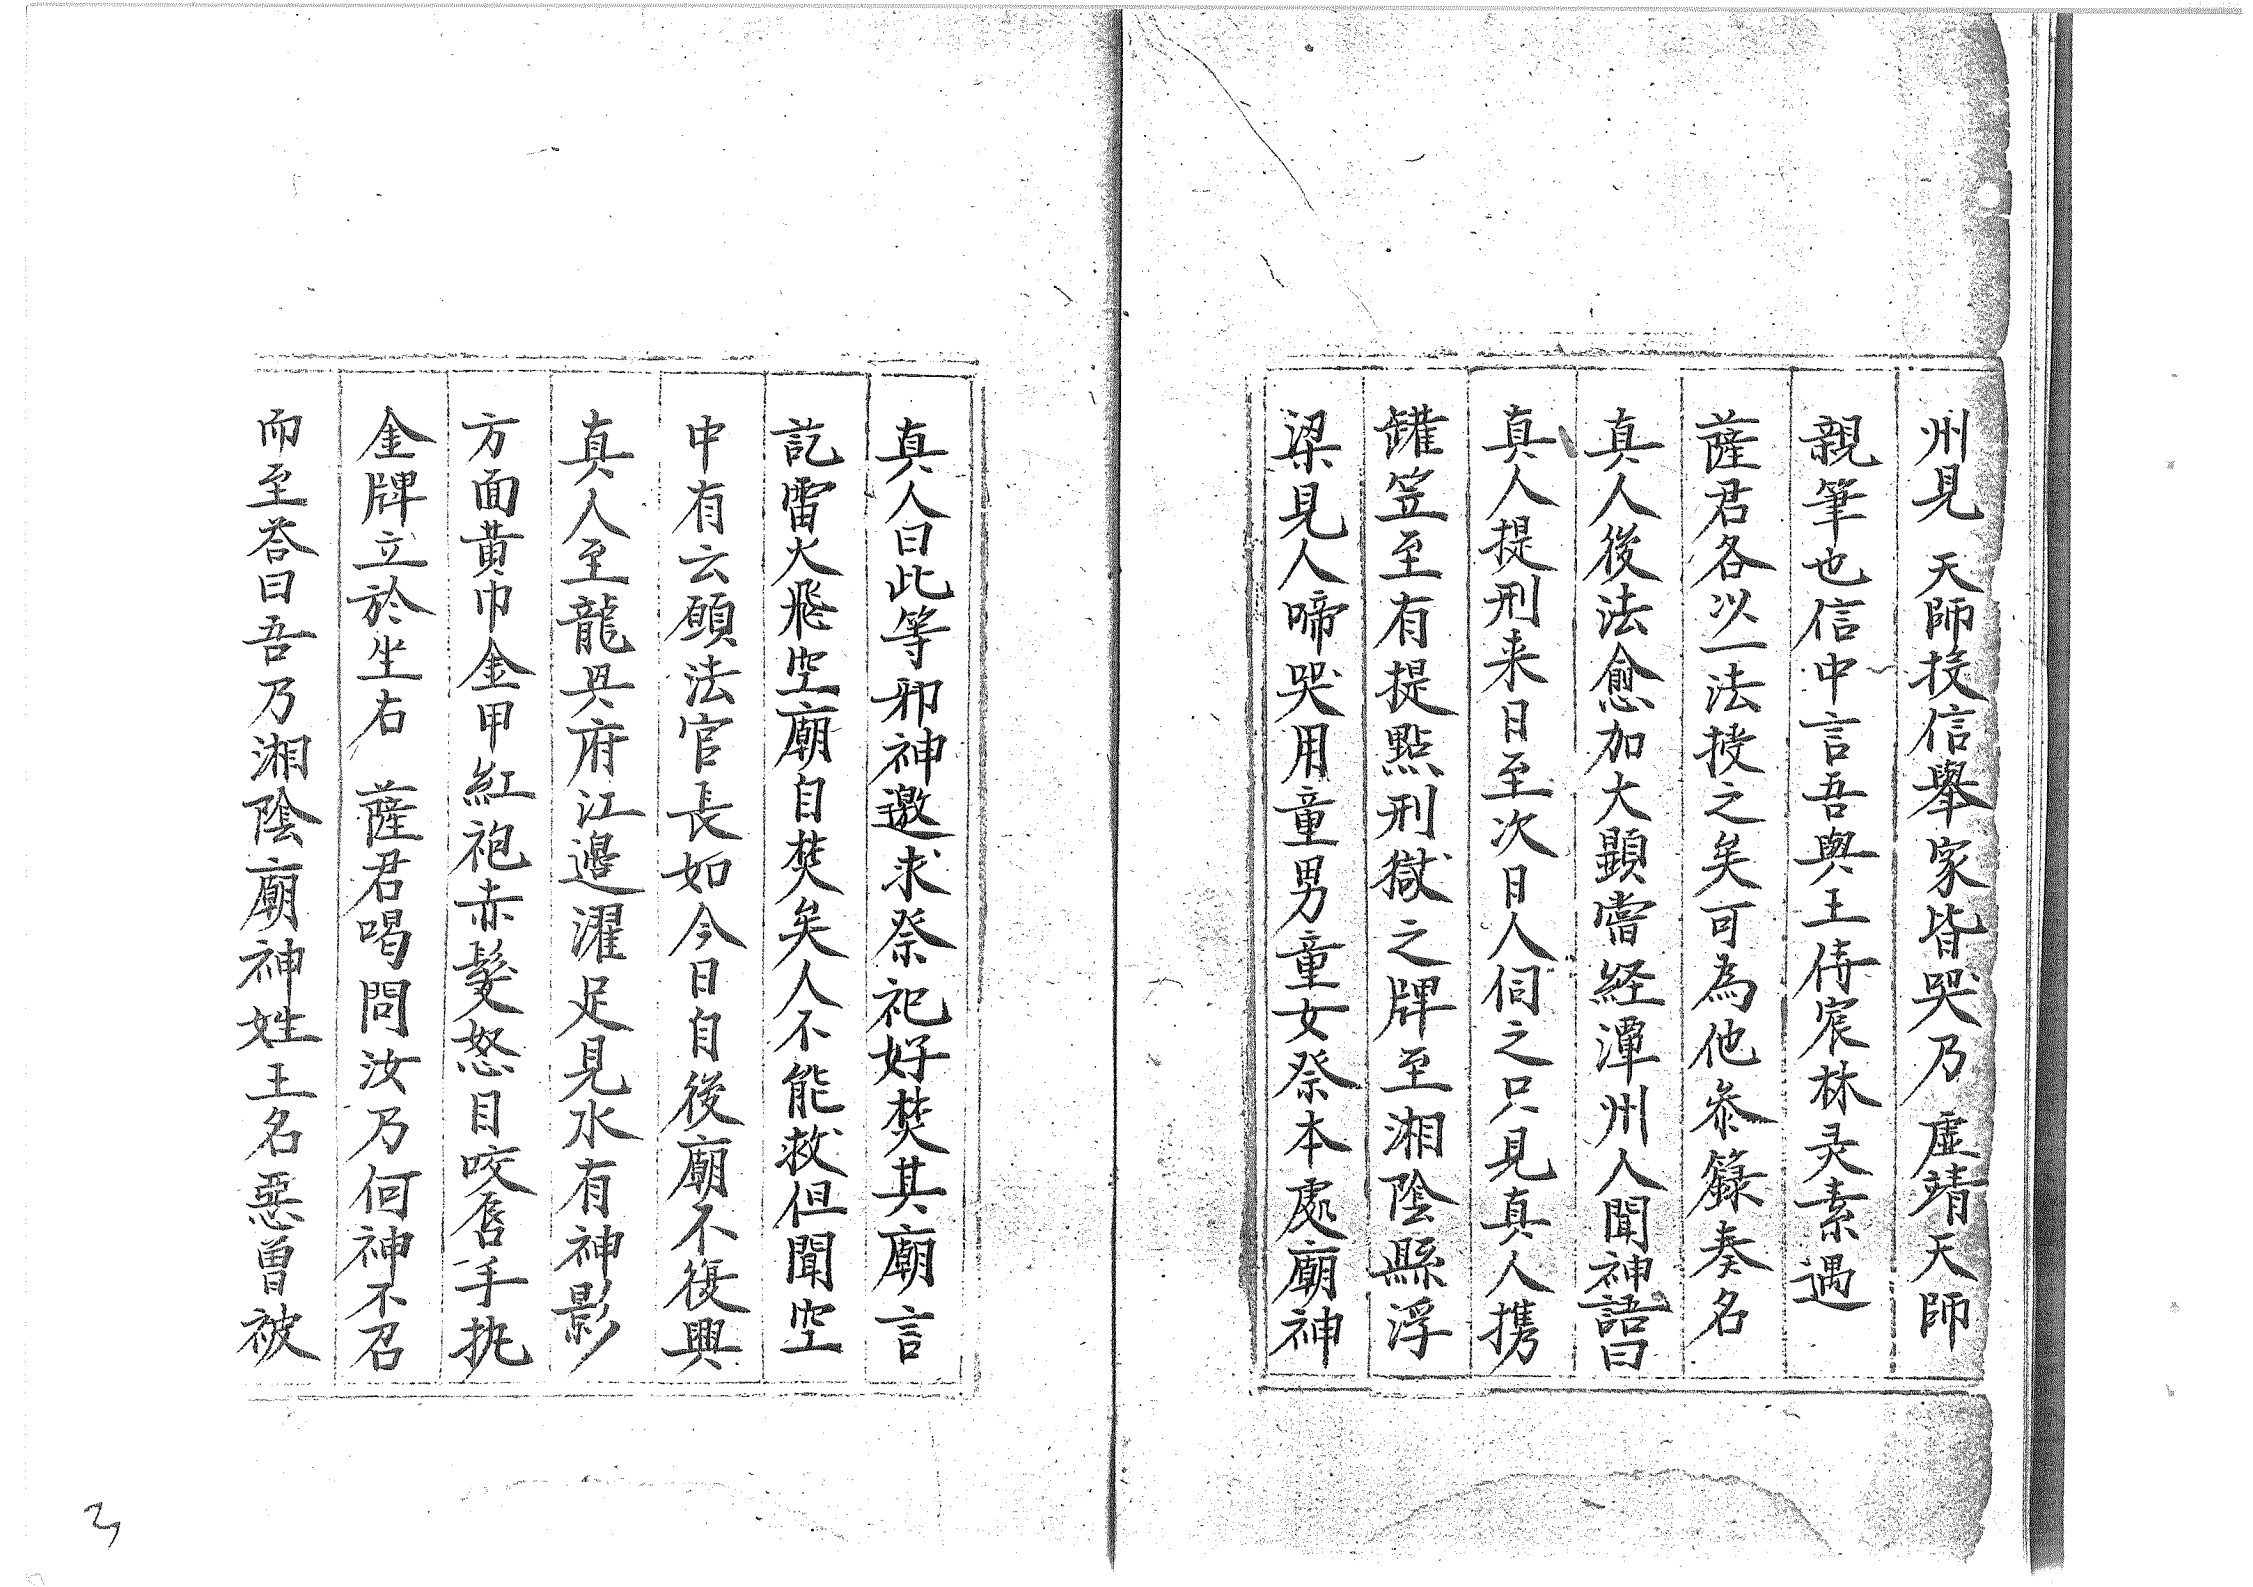 州見 天師投信舉家皆哭乃 虛靖天師
親筆也信中言吾與王侍宸林灵素遇
薩君各以一法授之矣可為他叅籙奏名
真人後法愈加大顯嘗経潭州人聞神語曰
真人提刑来日至次日人伺之只見真人携
鑵笠至有提點刑獄之牌至湘陰縣浮
梁見人啼哭用童男童女祭本處廟神
真人曰此等邪神邀求祭祀好焚其廟言
訖雷火飛空廟自焚矣人不能救但聞空
中有云願法官長如今日自後廟不復興
真人至龍興府江邊濯足見水有神影
方面黄巾金甲紅袍赤髮怒目咬唇手执
金牌立於坐右 薩君喝問汝乃何神不召
而至荅曰吾乃湘陰廟神姓王名惡曾被
3